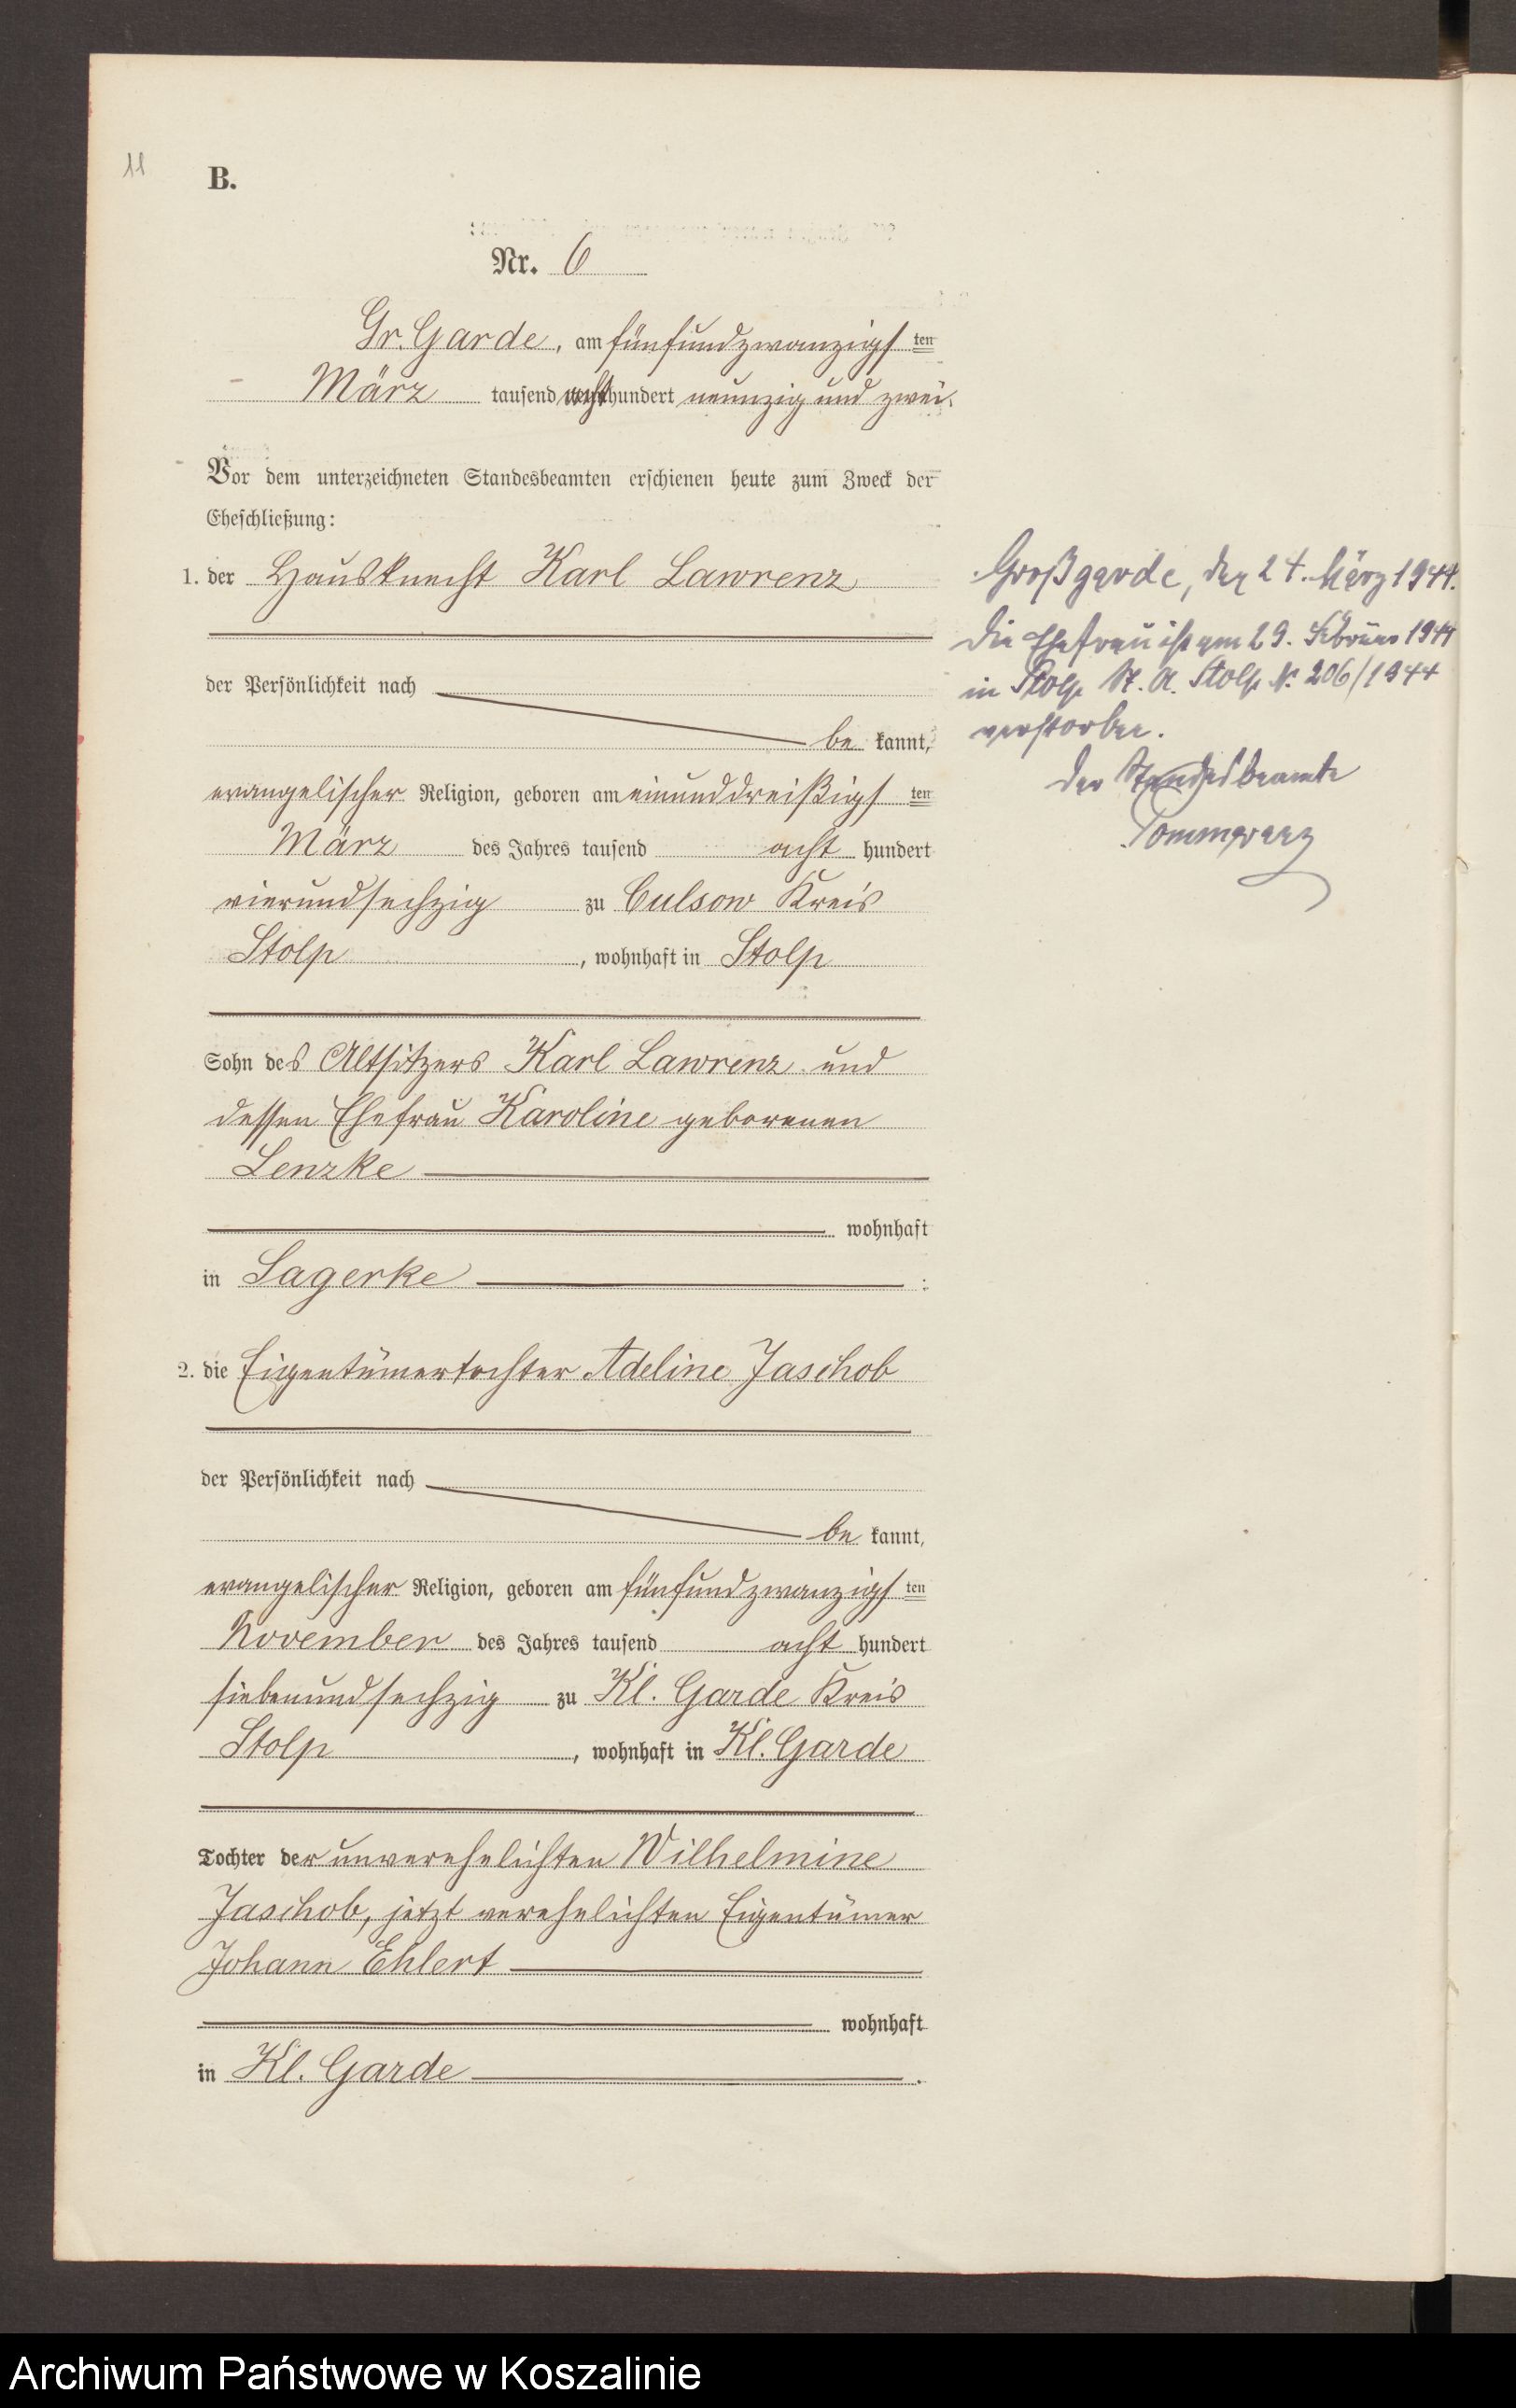 11
B.
Nr. 6
Gr. Garde, am fünfundzwanzigs ten
März tausend acht hundert neunzig und zwei.
Vor dem unterzeichneten Standesbeamten erschienen heute zum Zweck der
Eheschließung:
1. der Hausknecht Karl Lawrenz
der Persönlichkeit nach
be kannt,
evangelischer Religion, geboren am einunddreißigs ten
März des Jahres tausend acht hundert
vierundsechzig zu Culsow Kreis
Stolp, wohnhaft in Stolp
Sohn des Altsitzers Karl Lawrenz und
dessen Ehefrau Karoline geborenen
Lenzke
wohnhaft
in Lagerke :
2. die Eigentümertochter Adeline Jaschob
der Persönlichkeit nach
be kannt,
evangelischer Religion, geboren am fünfundzwanzigs ten
November des Jahres tausend acht hundert
siebenundsechzig zu Kl. Garde Kreis
Stolp, wohnhaft in Kl. Garde
Tochter der unverehelichten Wilhelmine
Jaschob, jetzt verehelichten Eigentümer
Johann Ehlert
wohnhaft
in Kl. Garde .
Großgarde, den 24. März 1944.
Die Ehefrau ist am 29. Februar 1944
in Stolp St. A. Stolp Nr. 206/1944
verstorben.
Der Standesbeamte
Archiwum Państwowe w Koszalinie